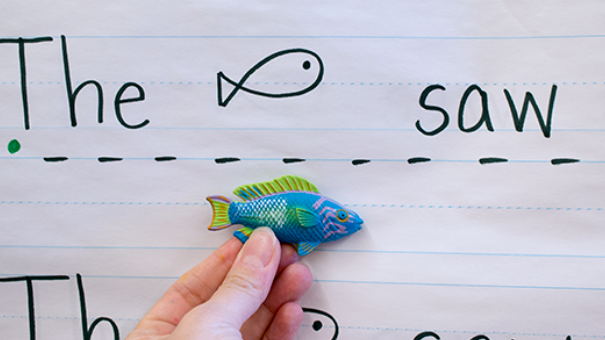 The saw
The